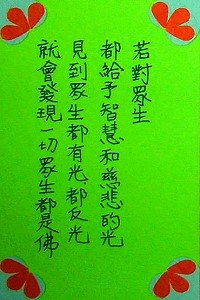 若對眾生
都給予智慧和慈悲的光
見到眾生都有光、都反光
就會發現一切眾生都是佛